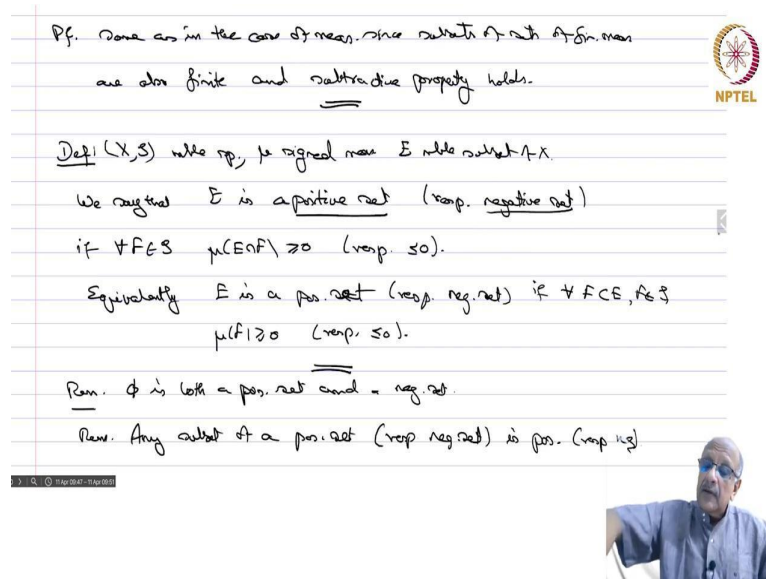 Pf. Same as in the case of meas. since subsets of sets of fin. meas
are also finite and subtractive property holds.
NPTEL
Def: (X, S) mble sp., μ signed meas E mble subset of X.
We say that E is a positive set (resp. negative set)
if ∀ F ∈ S μ(E∩F) ≥ 0 (resp. ≤ 0).
Equivalently E is a pos. set (resp. neg. set) if ∀ F ⊂ E, F ∈ S
μ(F) ≥ 0 (resp. ≤ 0).
Rem. φ is both a pos. set and a neg. set.
Rem. Any subset of a pos. set (resp neg. set) is pos. (resp neg)
11 Apr 09:47 - 11 Apr 09:51